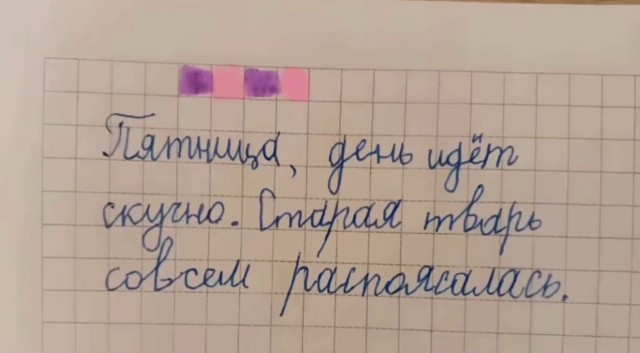 Пятница, день идёт
скучно. Старая тварь
совсем распоясалась.